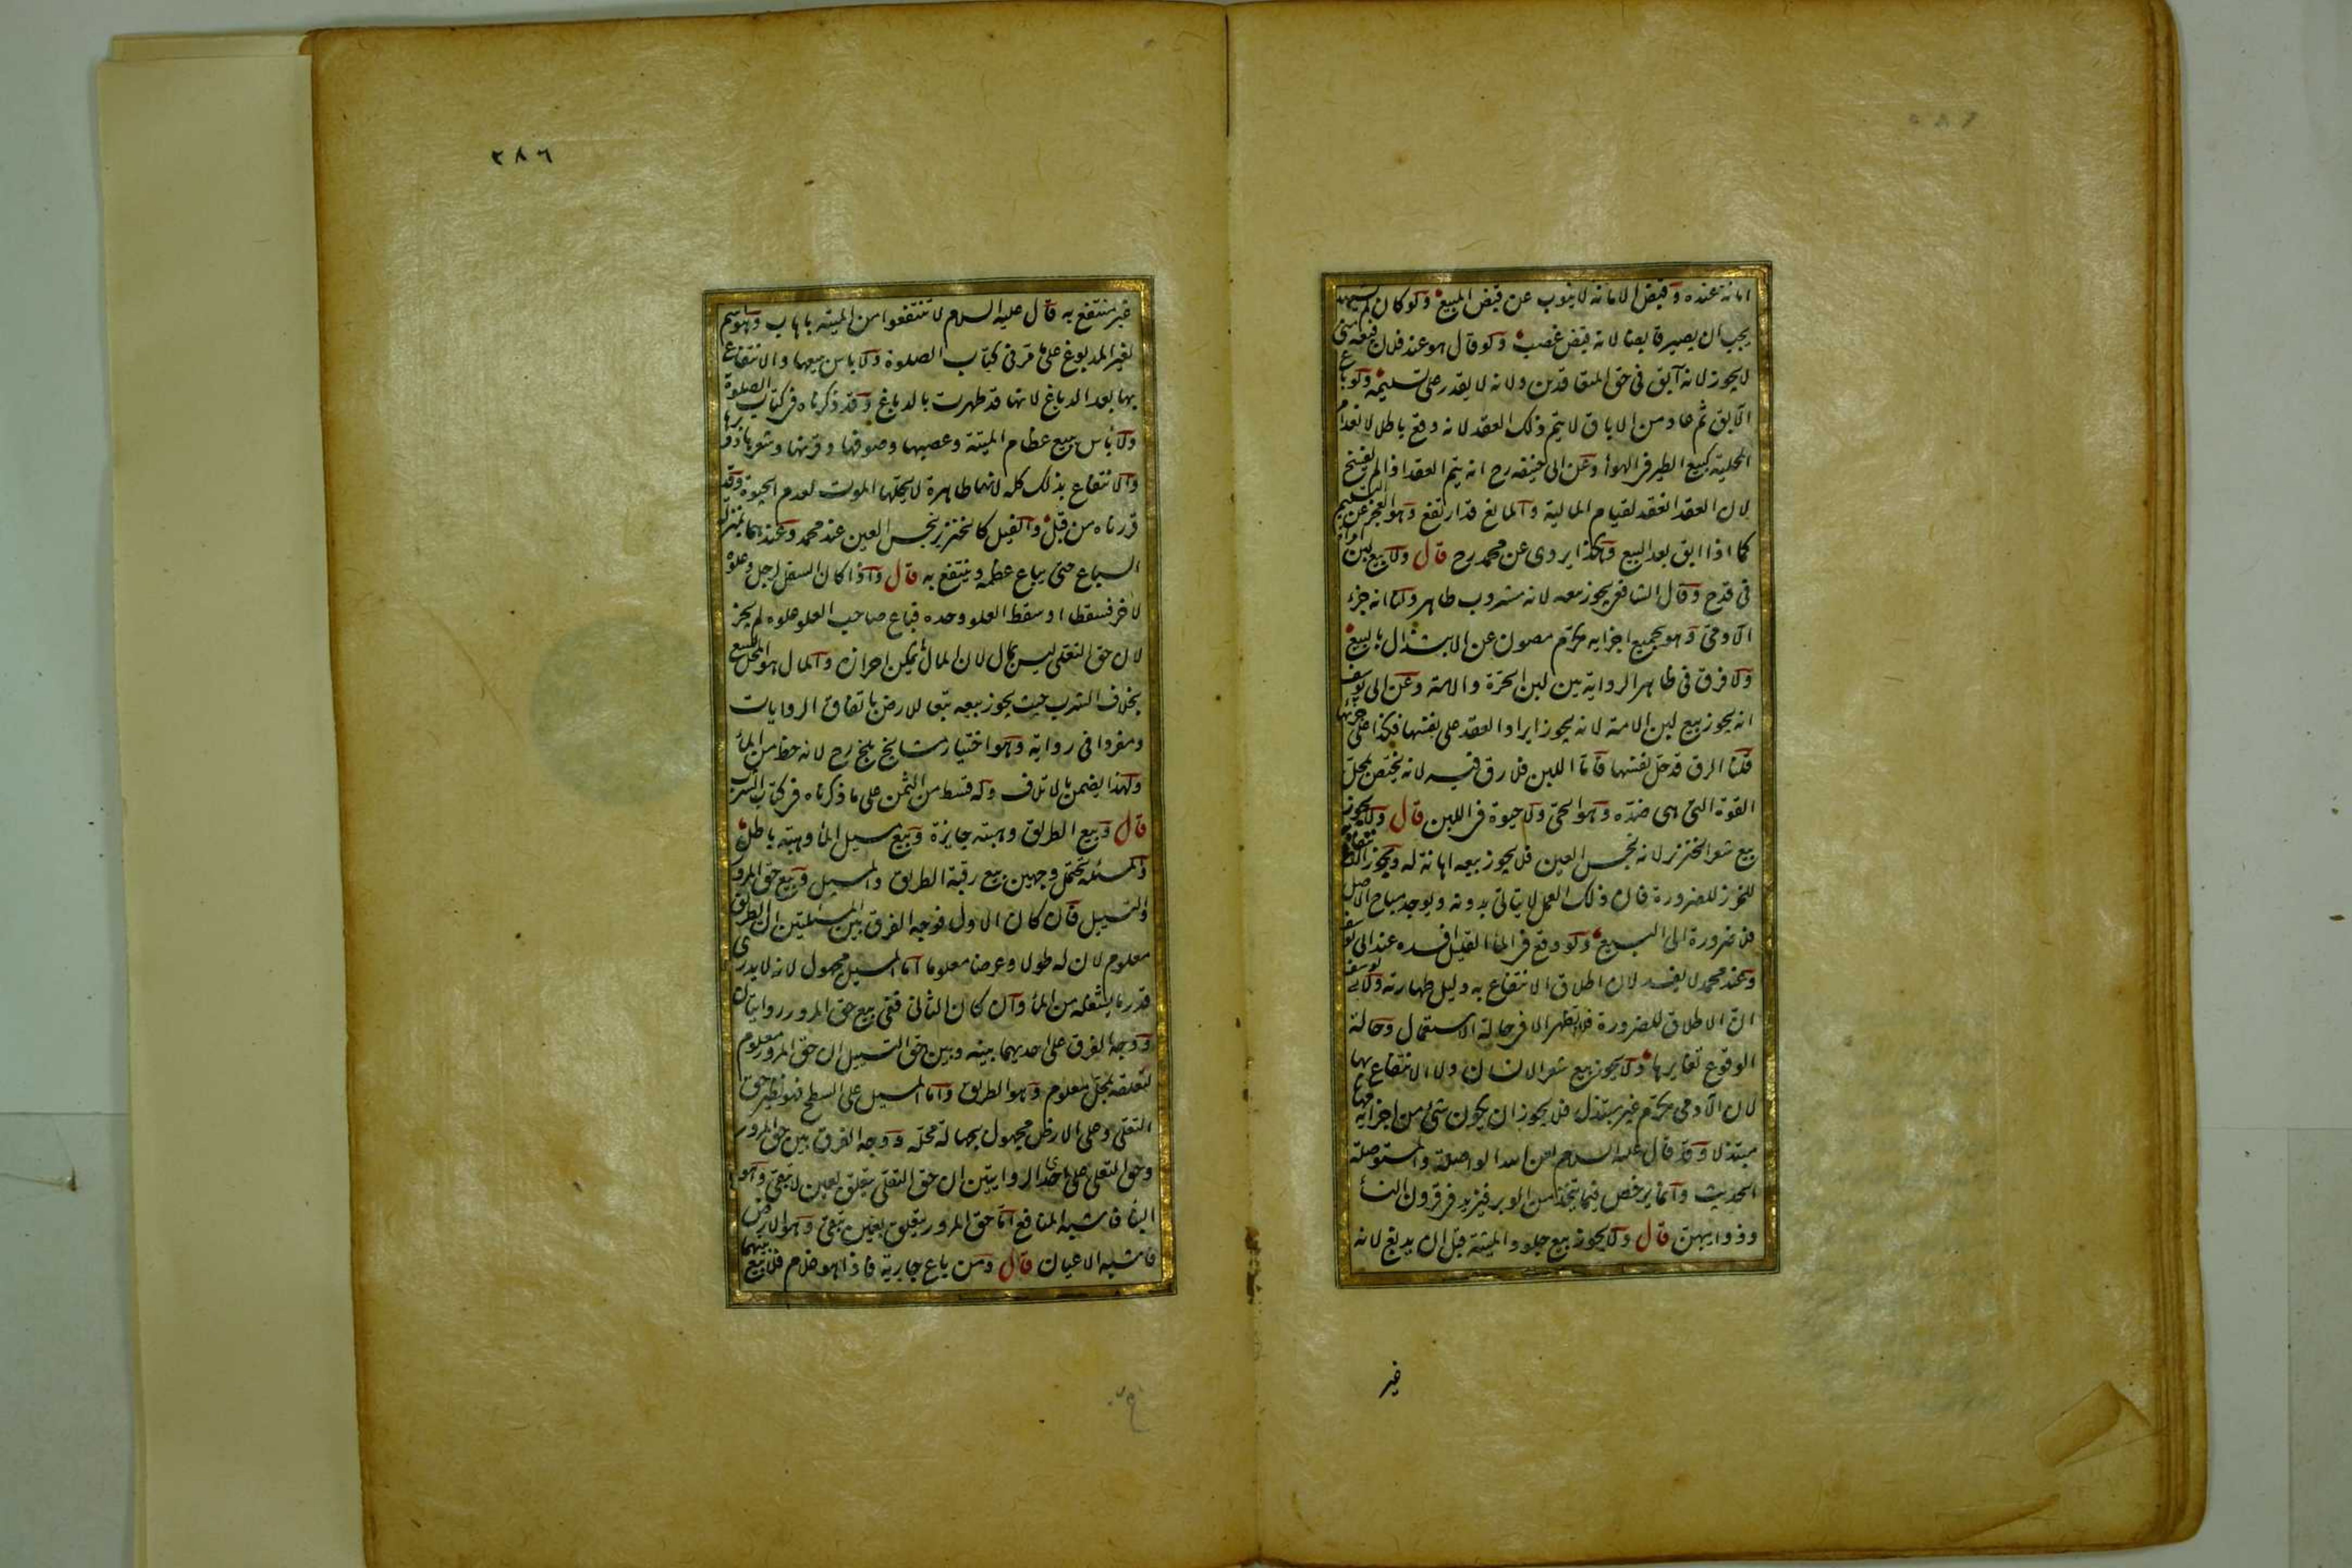 امانة عنده وقبض الامانة لا ينوب عن قبض المبيع ولو كان لم يشهد
يجب ان يصير قابضا لانه قبض غصب ولو قال هو عند فلان فبعه منى
لا يجوز لانه آبق فى حق المتعاقدين ولانه لا يقدر على تسليمه ولو باع
الآبق ثم عاد من الاباق لا يتم ذلك العقد لانه وقع باطلا لانعدام
المحلية كبيع الطير فى الهواء وعن ابى حنيفه رح انه يتم العقد اذا لم يفسخ
لان العقد انعقد لقيام المالية والمانع قد ارتفع وهو العجز عن التسليم
كما اذا ابق بعد البيع وهكذا يروى عن محمد رح قال ولا بيع لبن امراة
فى قدح وقال الشافعى يجوز بيعه لانه مشروب طاهر ولنا انه جزء
الآدمى وهو بجميع اجزايه مكرم مصون عن الابتذال بالبيع
ولا فرق فى ظاهر الرواية بين لبن الحرة والامة وعن ابى يوسف
انه يجوز بيع لبن الامة لانه يجوز ايراد العقد على نفسها فكذا على جزئها
قلنا الرق قد حل نفسها فاما اللبن فلا رق فيه لانه يختص بمحل
القوة التى هى ضده وهو الحى ولا حيوة فى اللبن قال ولا يجوز
بيع شعر الخنزير لانه نجس العين فلا يجوز بيعه اهانة له ويجوز الانتفاع به
للخرز للضرورة فان ذلك العمل لا يتاتى بدونه ويوجد مباح الاصل
فلا ضرورة الى البيع ولو وقع فى الماء القليل افسده عند ابى يوسف
وعند محمد لا يفسد لان اطلاق الانتفاع به دليل طهارته ولابى يوسف
ان الاطلاق للضرورة فلا تظهر الا فى حالة الاستعمال وحالة
الوقوع تغايرها ولا يجوز بيع شعر الانسان ولا الانتفاع بها
لان الآدمى مكرم غير مبتذل فلا يجوز ان يكون شئ من اجزايه مهانا
مبتذلا وقد قال عليه السلام لعن الله الواصلة والمستوصلة
الحديث وانما يرخص فيما يتخذ من الوبر فيزيد فى قرون النساء
وذوايبهن قال ولا يجوز بيع جلود الميتة قبل ان يدبغ لانه
غير
٢٨٦
غير منتفع به قال عليه السلام لا تنتفعوا من الميتة باهاب وهو اسم
لغير المدبوغ على ما مر فى كتاب الصلوة ولا باس ببيعها والانتفاع
بها بعد الدباغ لانها قد طهرت بالدباغ وقد ذكرناه فى كتاب الصلوة
ولا باس ببيع عظام الميتة وعصبها وصوفها وقرنها وشعرها ووبرها
والانتفاع بذلك كله لانها طاهرة لا يحلها الموت لعدم الحيوة وقد
قررناه من قبل والفيل كالخنزير نجس العين عند محمد وعندهما بمنزلة
السباع حتى يباع عظمه وينتفع به قال واذا كان السفل لرجل وعلوه
لآخر فسقطا او سقط العلو وحده فباع صاحب العلو علوه لم يجز
لان حق التعلى ليس بمال لان المال ما يمكن احرازه والمال هو المحل للبيع
بخلاف الشرب حيث يجوز بيعه تبعا للارض باتفاق الروايات
ومفردا فى رواية وهو اختيار مشايخ بلخ رح لانه حظ من الماء
ولهذا يضمن بالاتلاف وله قسط من الثمن على ما ذكرناه فى كتاب الشرب
قال وبيع الطريق وهبته جايزة وبيع مسيل الماء وهبته باطل
والمسئلة تحتمل وجهين بيع رقبة الطريق والمسيل وبيع حق المرور
والتسييل فان كان الاول فوجه الفرق بين المسئلتين ان الطريق
معلوم لان له طولا وعرضا معلوما اما المسيل مجهول لانه لا يدرى
قدر ما يشغله من الماء وان كان الثانى ففى بيع حق المرور روايتان
ووجه الفرق على احديهما بينه وبين حق التسييل ان حق المرور معلوم
لتعلقه بمحل معلوم وهو الطريق واما المسيل على السطح فهو نظير حق
التعلى وعلى الارض مجهول بجهالة محله ووجه الفرق بين حق المرور
وحق التعلى على احدى الروايتين ان حق التعلى يتعلق بعين لا تبقى وهو
البناء فاشبه المنافع اما حق المرور يتعلق بعين تبقى وهو الارض
فاشبه الاعيان قال ومن باع جارية فاذا هو غلام فلا بيع بينهما